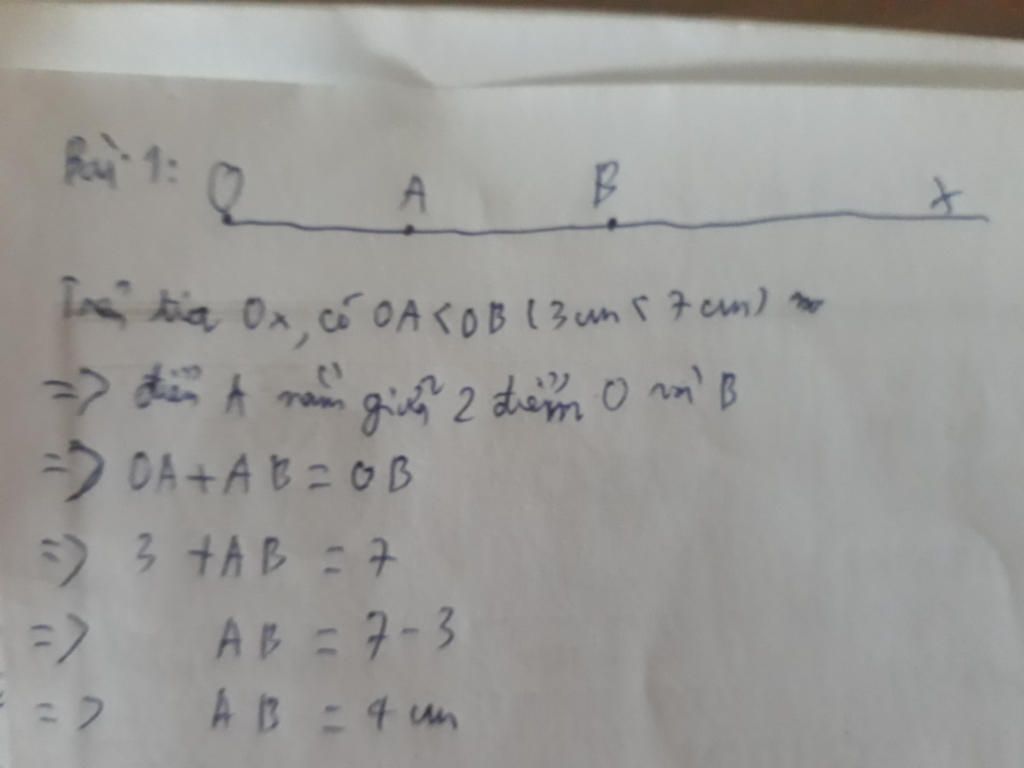 Bài 1:
O A B x
Trên tia Ox, có OA < OB (3cm < 7cm)
=> điểm A nằm giữa 2 điểm O và B
=> OA + AB = OB
=> 3 + AB = 7
=> AB = 7 - 3
=> AB = 4 cm